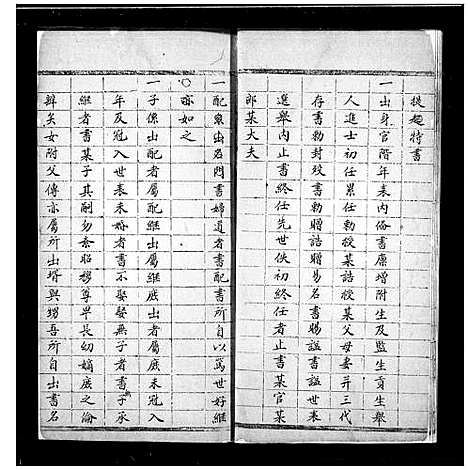 提題特書
一出身官階年表內俻書廪增附生及監生貢生舉
人進士初任累任勅授某誥授某父母妻并三代
存書勅封歿書勅贈誥贈易名書賜謚書謚世表
選舉內止書終任先世佚初終任者止書某官某
郎某大夫
一配眾出名門書婦道者書配書所自以篤世好繼
亦如之
一子係出配者屬配繼出者屬繼庶出者屬庶未冠入
年及冠入世表未婚者書不娶娶無子者書子承
繼者書某子其嗣勿紊昭穆尊卑長幼嫡庶之倫
辨矣女附父傳亦屬所出壻與甥吾所自出書名